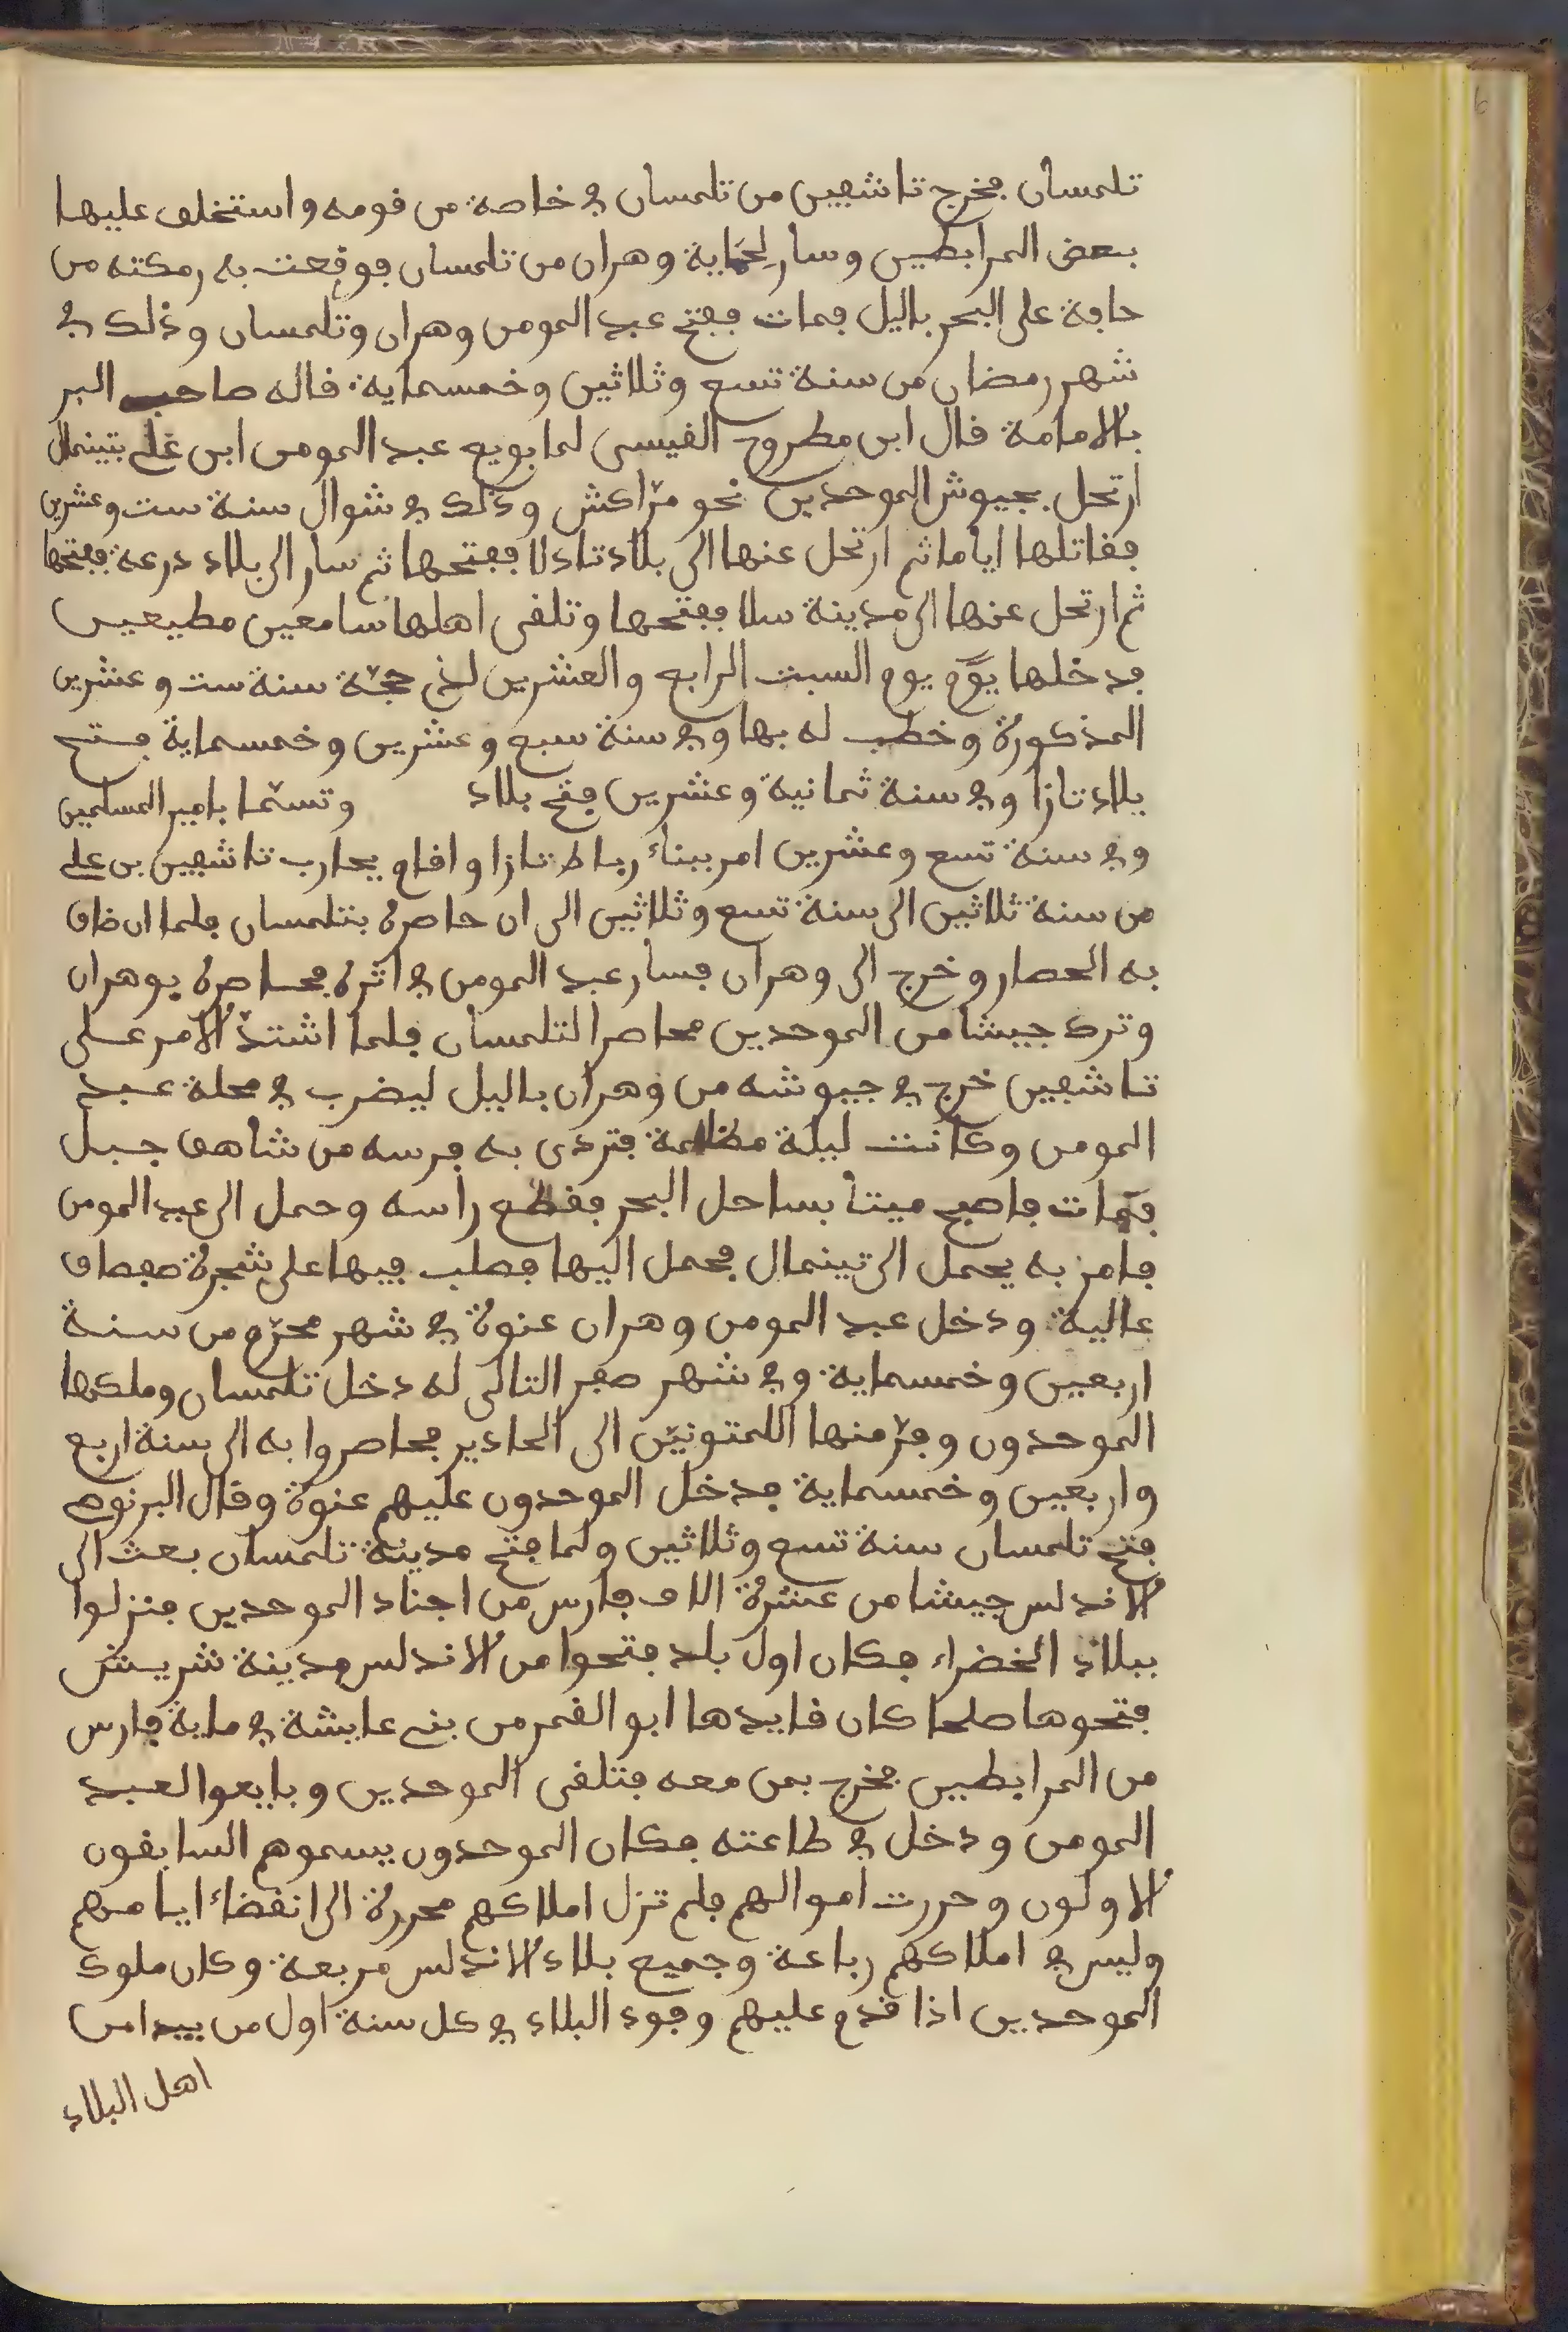 تلمسان فخرج تاشفين من تلمسان في خاصة من قومه واستخلف عليها
بعض المرابطين وسار لحماية وهران من تلمسان فوقعت به رمكته من
حافة على البحر باليل فمات ففتح عبد المومن وهران وتلمسان وذلك في
شهر رمضان من سنة تسع وثلاثين وخمسماية قاله صاحب البر
بالامامة قال ابن مطروح القيسي لما بويع عبد المومن ابن علي بتينمال
ارتحل بجيوش الموحدين نحو مرّاكش وذلك في شوال سنة ست وعشرين
فقاتلها اياما ثم ارتحل عنها الى بلاد تادلا ففتحها ثم سار الى بلاد درعة ففتحها
ثم ارتحل عنها الى مدينة سلا ففتحها وتلقى اهلها سامعين مطيعين
فدخلها يوم يوم السبت الرابع والعشرين لذي حجّة سنة ست وعشرين
المذكورة وخطب له بها وفي سنة سبع وعشرين وخمسماية فتح
بلاد تازا وفي سنة ثمانية وعشرين فتح بلاد وتسمّا بامير المسلمين
وفي سنة تسع وعشرين امر ببناء رباط تازا واقام يحارب تاشفين بن علي
من سنة ثلاثين الى سنة تسع وثلاثين الى ان حاصره بتلمسان فلما ان ضاق
به الحصار وخرج الى وهران فسار عبد المومن في اثره فحاصره بوهران
وترك جيشا من الموحدين محاصرا لتلمسان فلما اشتدّ الامر على
تاشفين خرج في جيوشه من وهران باليل ليضرب في محلة عبد
المومن وكانت ليلة مظلمة فتردى به فرسه من شاهق جبل
فمات فاصبح ميتا بساحل البحر فقطع راسه وحمل الى عبد المومن
فامر به يحمل الى تينمال فحمل اليها فصلب فيها على شجرة صفصاف
عالية ودخل عبد المومن وهران عنوة في شهر محرّم من سنة
اربعين وخمسماية وفي شهر صفر التالى له دخل تلمسان وملكها
الموحدون وفرّ منها اللمتونيّن الى الحادير فحاصروا به الى سنة اربع
واربعين وخمسماية فدخل الموحدون عليهم عنوة وقال البرنوصي
فتح تلمسان سنة تسع وثلاثين ولما فتح مدينة تلمسان بعث الى
الاندلس جيشا من عشرة الاف فارس من اجناد الموحدين فنزلوا
ببلاد الخضراء فكان اول بلد فتحوا من الاندلس مدينة شريش
فتحوها صلحا كان قايدها ابو القمر من بني عايشة في ماية فارس
من المرابطين فخرج بمن معه فتلقى الموحدين وبايعوا لعبد
المومن ودخل في طاعته فكان الموحدون يسموهم السابقون
الاولون وحررت اموالهم فلم تزل املاكهم محررة الى انقضاء ايامهم
وليس في املاكهم رباعة وجميع بلاد الاندلس مربعة وكان ملوك
الموحدين اذا قدم عليهم وفود البلاد في كل سنة اول من يبدا من
اهل البلاد